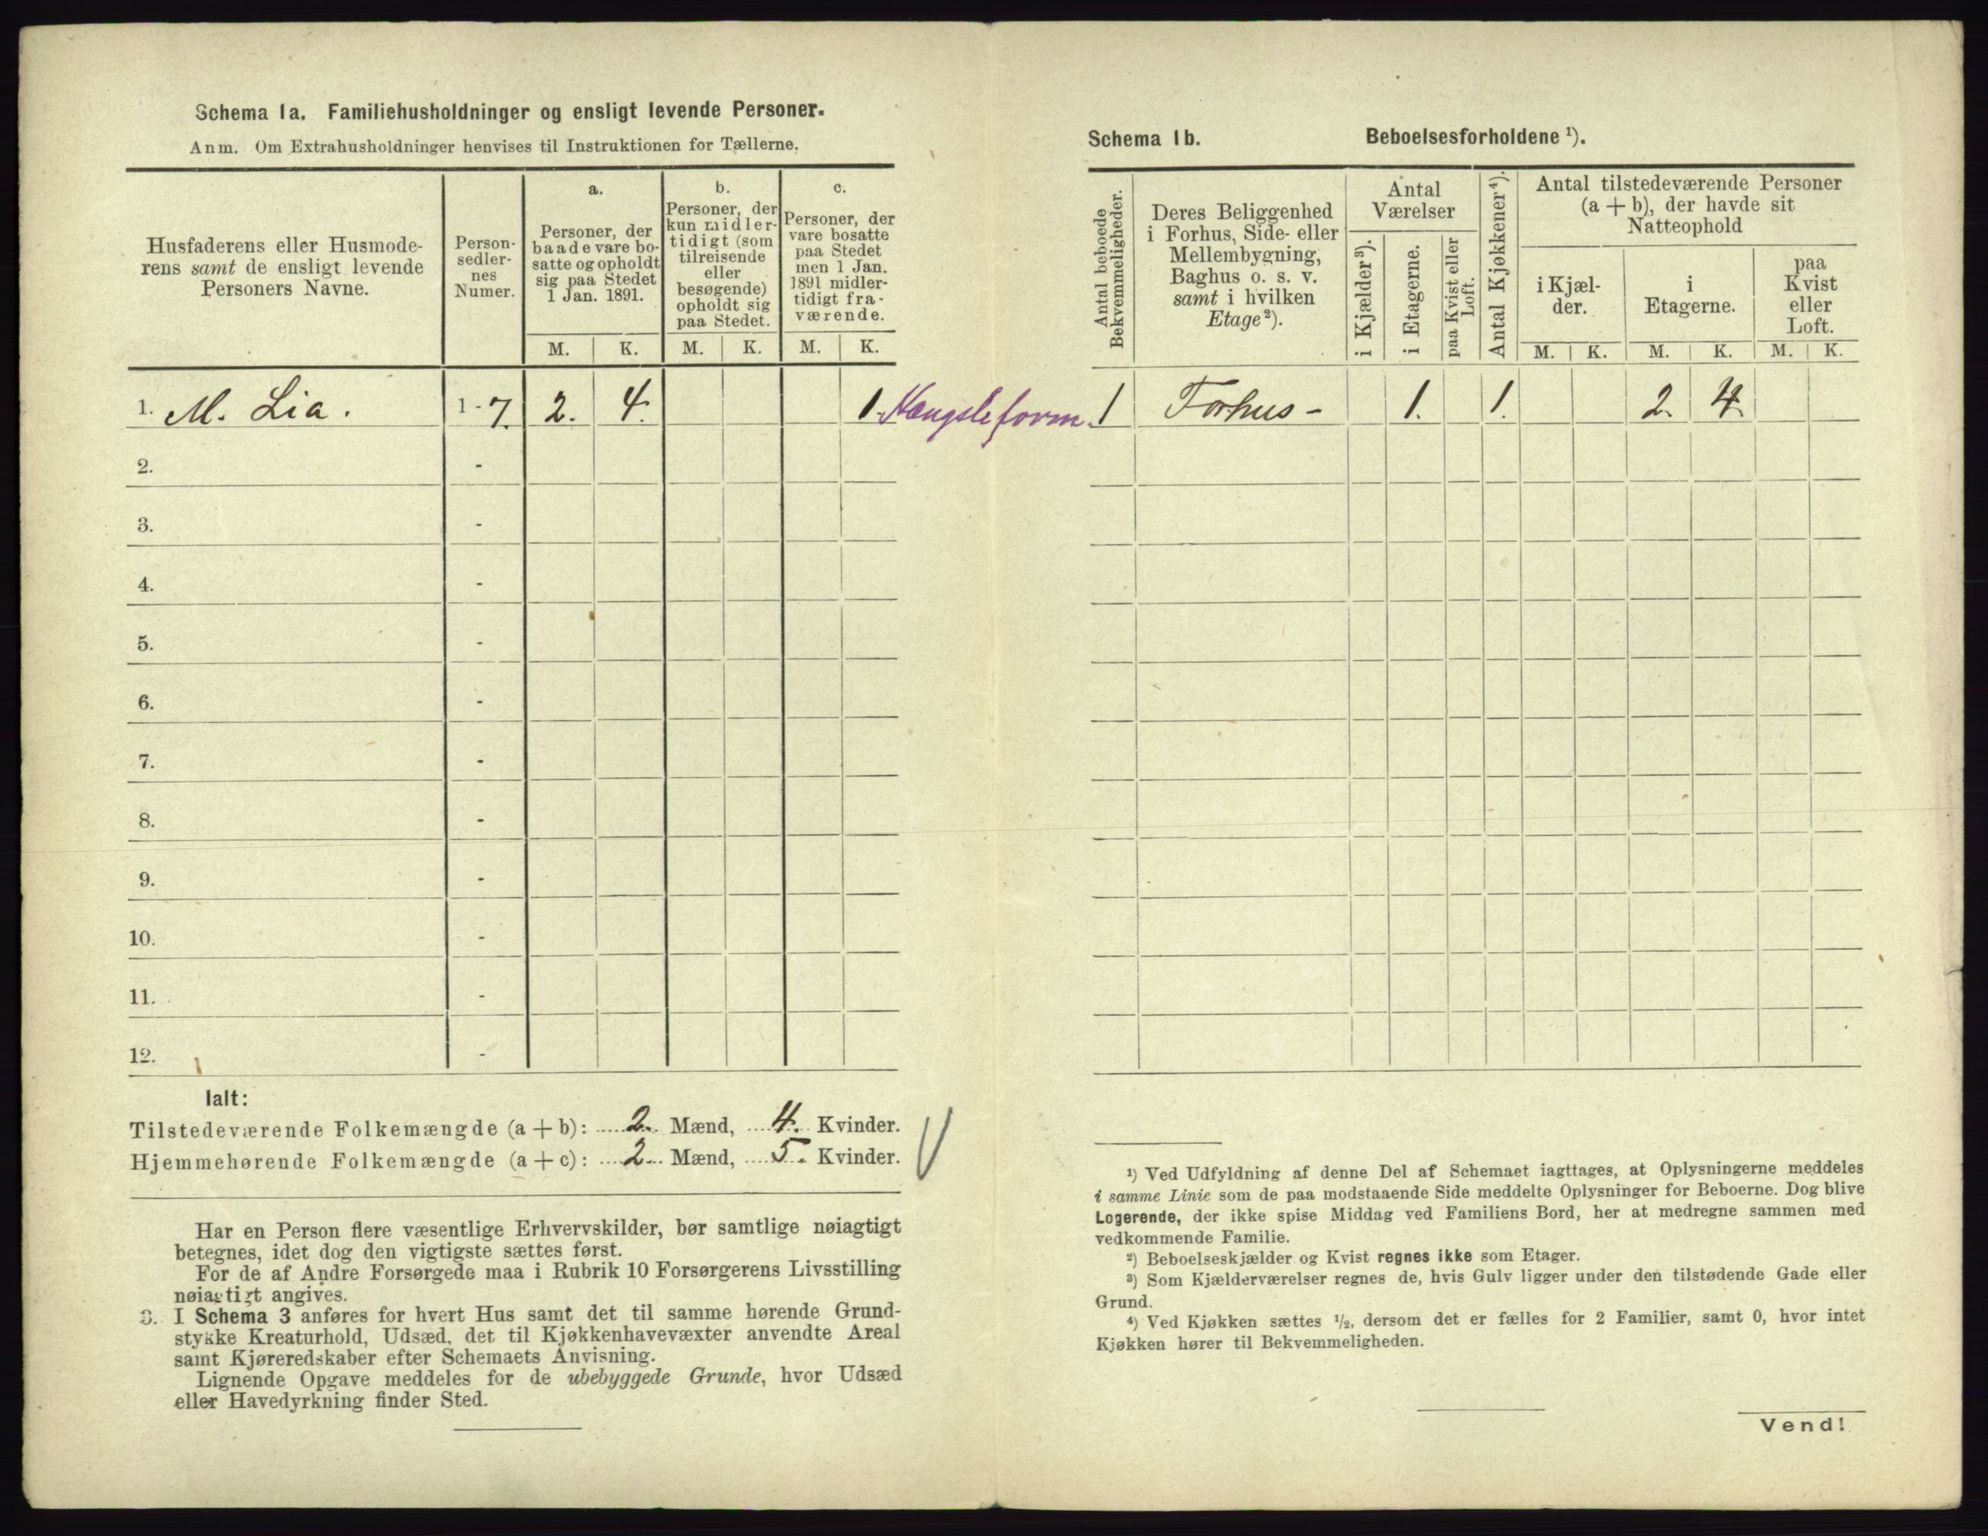 Schema 1a. Familiehusholdninger og ensligt levende Personer.
Anm. Om Extrahusholdninger henvises til Instruktionen for Tællerne.
Husfaderens eller Husmode-
rens samt de ensligt levende
Personers Navne.
Person-
sedler-
nes
Numer.
a.
Personer, der
baade vare bo-
satte og opholdt
sig paa Stedet
1 Jan. 1891.
b.
Personer, der
kun midler-
tidigt (som
tilreisende
eller
besøgende)
opholdt sig
paa Stedet.
c.
Personer, der
vare bosatte
paa Stedet
men 1 Jan.
1891 midler-
tidigt fra-
værende.
M. K. M. K. M. K.
1. M. Lia. 1 - 7. 2. 4. 1.
2. -
3. -
4. -
5. -
6. -
7. -
8. -
9. -
10. -
11. -
12. -
Ialt:
Tilstedeværende Folkemængde (a + b): 2. Mænd, 4. Kvinder.
Hjemmehørende Folkemængde (a + c): 2 Mænd, 5. Kvinder.
Har en Person flere væsentlige Erhvervskilder, bør samtlige nøiagtigt
betegnes, idet dog den vigtigste sættes først.
For de af Andre Forsørgede maa i Rubrik 10 Forsørgerens Livsstilling
nøiagtigt angives.
3. I Schema 3 anføres for hvert Hus samt det til samme hørende Grund-
stykke Kreaturhold, Udsæd, det til Kjøkkenhavevæxter anvendte Areal
samt Kjøreredskaber efter Schemaets Anvisning.
Lignende Opgave meddeles for de ubebyggede Grunde, hvor Udsæd
eller Havedyrkning finder Sted.
Schema 1b. Beboelsesforholdene ¹).
Antal beboede
Bekvemmeligheder.
Deres Beliggenhed
i Forhus, Side- eller
Mellembygning,
Baghus o. s. v.
samt i hvilken
Etage²).
Antal
Værelser
i Kjælder³).
i Etagerne.
paa Kvist eller
Loft.
Antal Kjøkkener⁴).
Antal tilstedeværende Personer
(a + b), der havde sit
Natteophold
i Kjæl-
der.
i
Etagerne.
paa
Kvist
eller
Loft.
M. K. M. K. M. K.
1 Forhus - 1. 1. 2. 4.
¹) Ved Udfyldning af denne Del af Schemaet iagttages, at Oplysningerne meddeles
i samme Linie som de paa modstaaende Side meddelte Oplysninger for Beboerne. Dog blive
Logerende, der ikke spise Middag ved Familiens Bord, her at medregne sammen med
vedkommende Familie.
²) Beboelseskjælder og Kvist regnes ikke som Etager.
³) Som Kjælderværelser regnes de, hvis Gulv ligger under den tilstødende Gade eller
Grund.
⁴) Ved Kjøkken sættes ½, dersom det er fælles for 2 Familier, samt 0, hvor intet
Kjøkken hører til Bekvemmeligheden.
Vend!